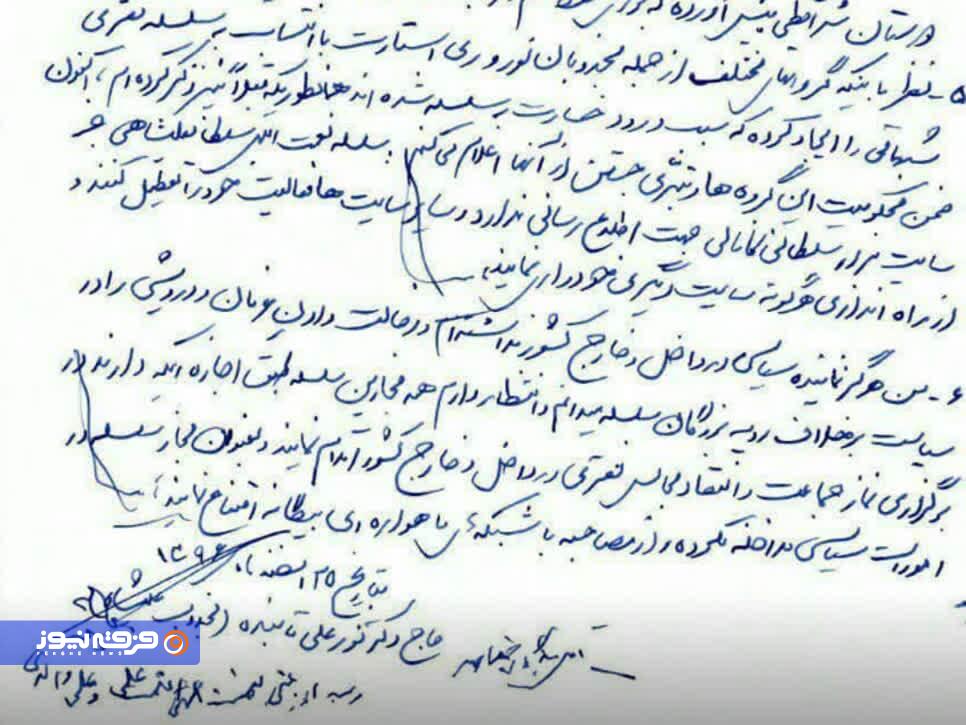 درستان شرایطی پیش آورده که برای
۵- نظر باینکه گروههای مختلف از جمله مجذوبان نور و ری استارت با انتساب به سلسله فقری
شبهاتی را ایجاد کرده که سبب ورود خسارت به سلسله شده اند همانطوریکه قبلاً نیز ذکر کرده ام، اکنون
ضمن محکومیت این گروه ها و تبری جستن از آنها اعلام می کنم سلسله نعمت اللهی سلطانعلیشاهی جز
سایت مزار سلطانی نمایانی جهت اطلاع رسانی ندارد و سایر سایت ها فعالیت خود را تعطیل کنند و
از راه اندازی هرگونه سایت دیگری خودداری نمایند.
۶- من هرگز نماینده سیاسی در داخل و خارج کشور نداشته‌ام و دخالت دادن عرفان و درویشی را در
سیاست برخلاف رویه بزرگان سلسله میدانم و انتظار دارم همه مجازین سلسله طبق اجازه آنکه دارند در
برگزاری نماز جماعت و انعقاد مجالس فقری در داخل و خارج کشور اقدام نمایند و بعنوان مجاز سلسله در
امورات سیاسی مداخله نکرده و از مصاحبه با شبکه‌های ماهواره ای بیگانه امتناع نمایند.
بتاریخ ۲۵ اسفند ۱۳۹۶
حاج دکتر نورعلی تابنده (مجذوب علیشاه)
فرقه نیوز
FERGHE NEWS